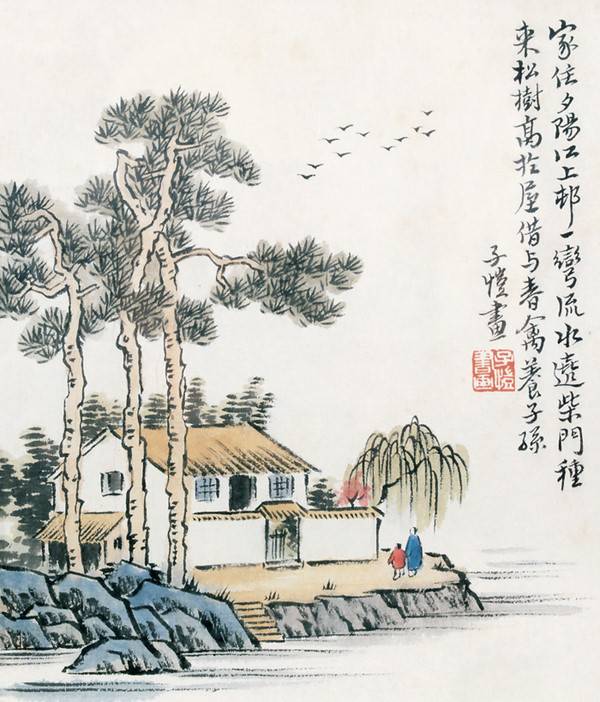 家住夕陽江上邨一彎流水遶柴門種
来松樹高於屋借与春禽養子孫
子愷畫
子愷書画